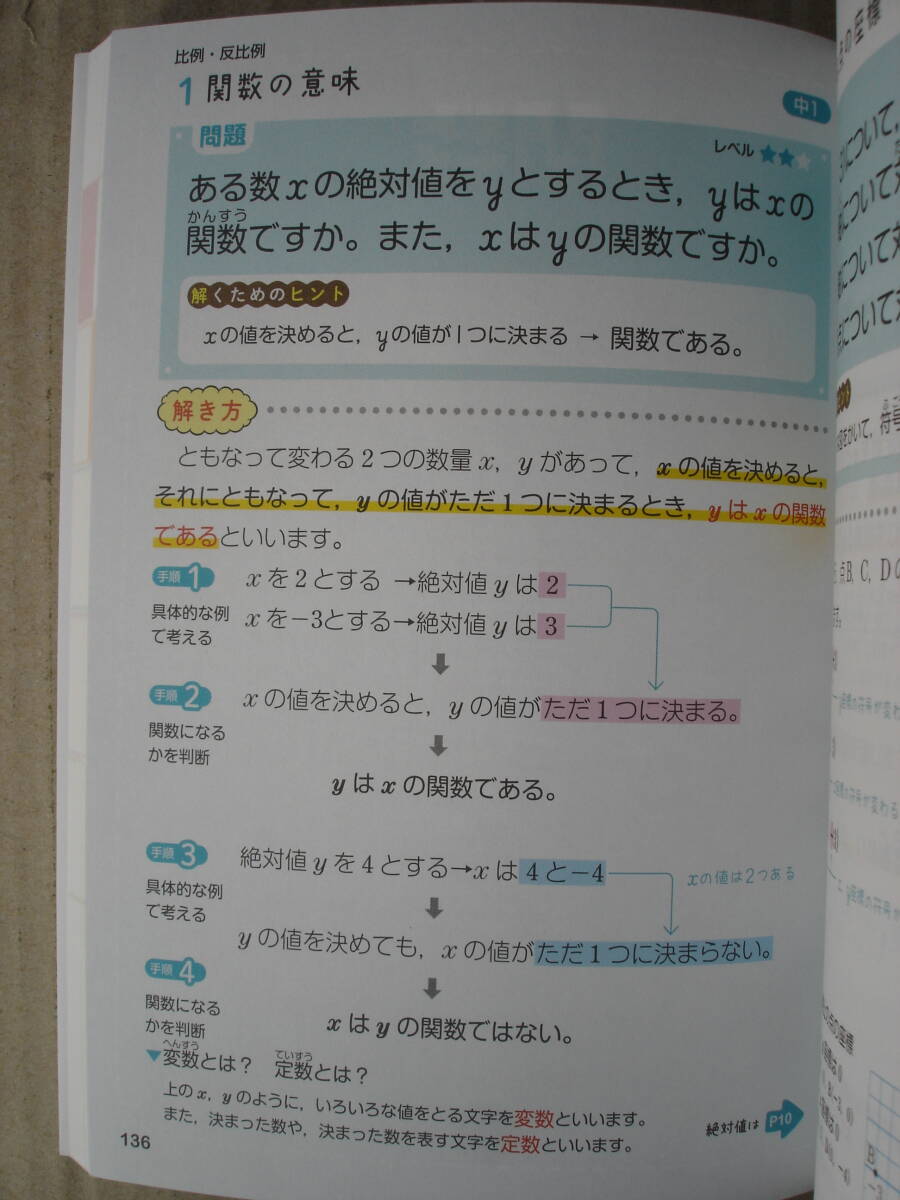 比例・反比例
1 関数の意味
中1
問題
レベル ★★☆
ある数xの絶対値をyとするとき，yはxの
かんすう
関数ですか。また，xはyの関数ですか。
解くためのヒント
xの値を決めると，yの値が1つに決まる → 関数である。
解き方
ともなって変わる2つの数量x，yがあって，xの値を決めると，
それにともなって，yの値がただ1つに決まるとき，yはxの関数
であるといいます。
手順1
具体的な例
で考える
xを2とする →絶対値yは2
xを−3とする→絶対値yは3
手順2
関数になる
かを判断
xの値を決めると，yの値がただ1つに決まる。
yはxの関数である。
手順3
具体的な例
で考える
絶対値yを4とする→xは4と−4
xの値は2つある
yの値を決めても，xの値がただ1つに決まらない。
手順4
関数になる
かを判断
xはyの関数ではない。
へんすう ていすう
▼変数とは？ 定数とは？
上のx，yのように，いろいろな値をとる文字を変数といいます。
また，決まった数や，決まった数を表す文字を定数といいます。
絶対値は P10
136
の座標
について，
について対
について対
について対
をかいて，符号
点B，C，Dの
y座標の符号が変わ
座標の符号が変わる
y座標の符号が
の点の座標
B
−3